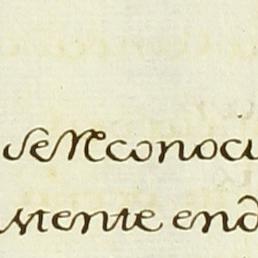 se Reconoci
istente end